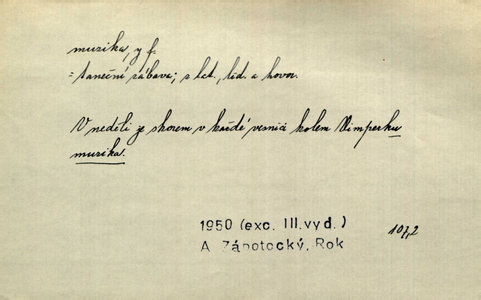 muzika, y f.
= taneční zábava; s let., lid. a hovor.
V neděli je skorem v každé vesnici kolem Vimperku
muzika.
1950 (exc. III.vyd.)
A. Zápotocký, Rok
107,2